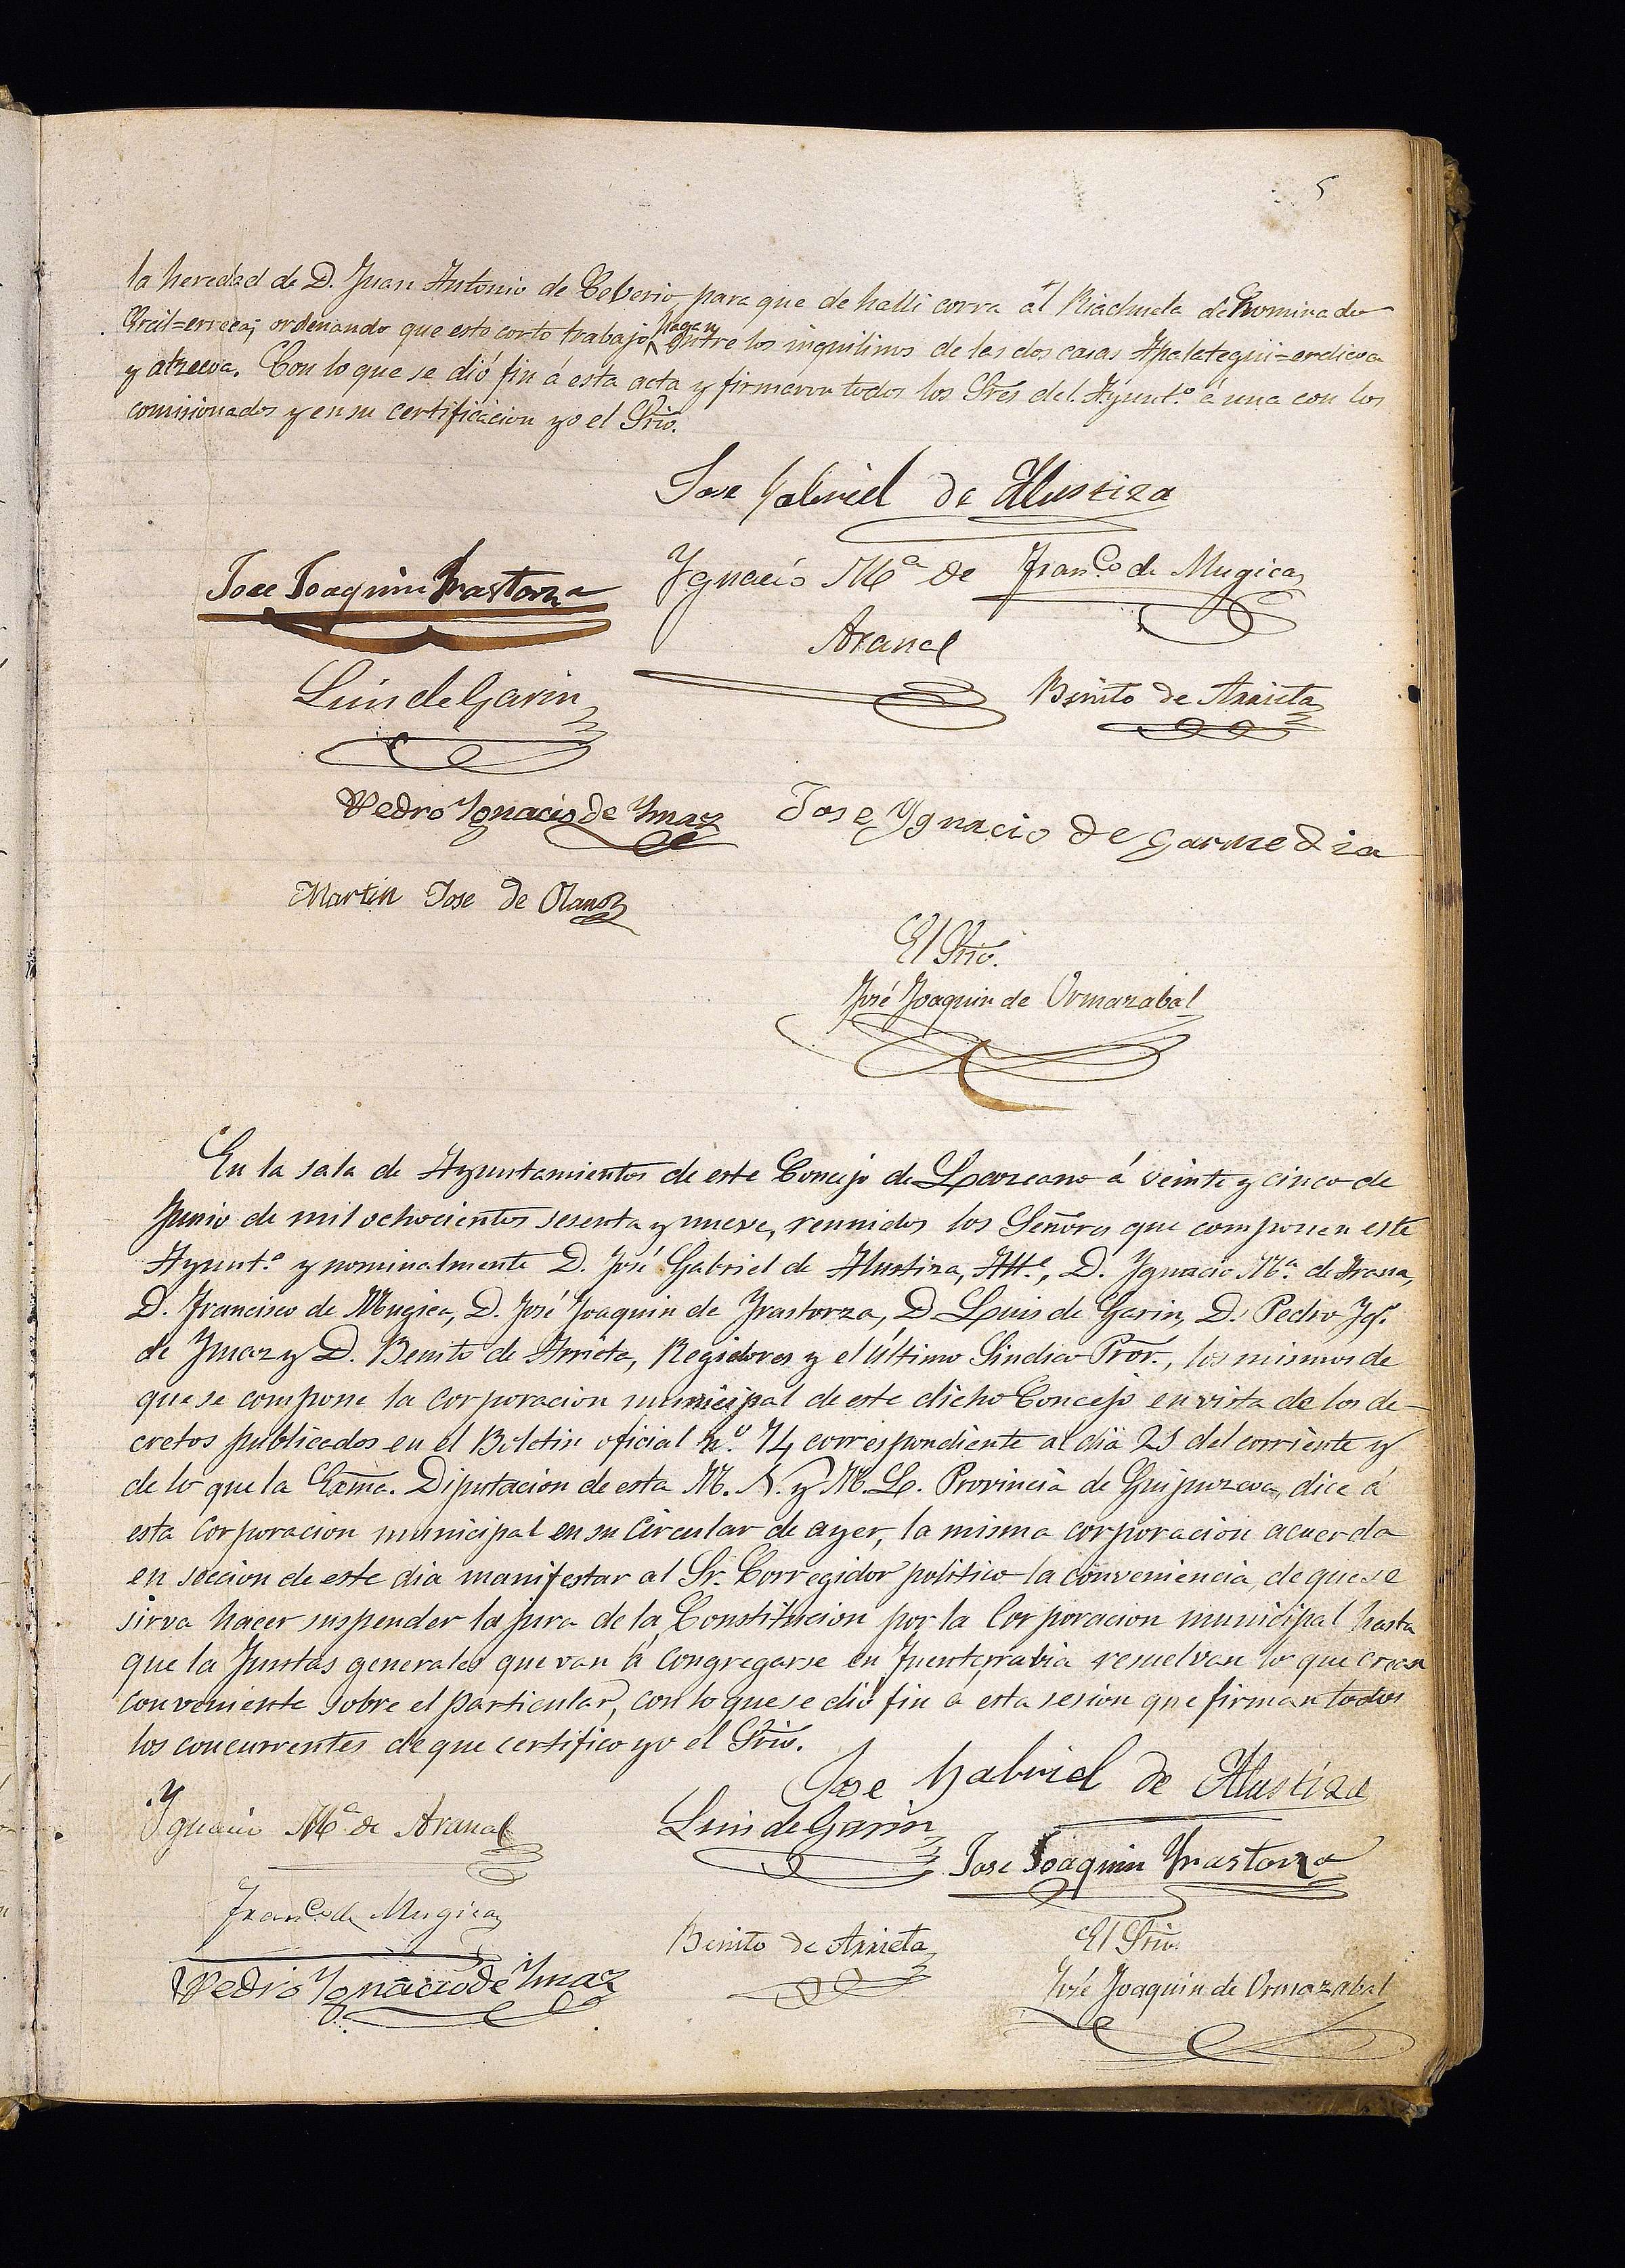 5
la heredad de D. Juan Antonio de Ceberio, para que de halli corra al Riachuelo denominado
ordenando que esto corto trabajo hagan entre los inquilinos de las dos casas Apalategui=erdicoa
y atzecoa. Con lo que se dió fin á esta acta y firmaron todos los Sres del Ayunt.º á una con los
comisionados y en su certificacion yo el Srio.
Jose Gabriel de Alustiza
Jose Joaquin Yrastorza
Ygnacio M.ª de
Aranal
Fran.co de Mugica
Luis de Garin
Benito de Arrieta
Pedro Ygnacio de Ymaz
Jose Ygnacio de Garmedia
Martin Jose de Olano
El Srio.
José Joaquin de Ormazabal
En la sala de Ayuntamientos de este Concejo de Lazcano á veinte y cinco de
Junio de mil ochocientos sesenta y nueve, reunidos los Señores que componen este
Ayunt.º y nominalmente D. José Gabriel de Alustiza, Alt.e, D. Ygnacio M.ª de Arana,
D. Francisco de Mugica, D. José Joaquin de Yrastorza, D. Luis de Garin, D. Pedro Yg.º
de Ymaz y D. Benito de Arrieta, Regidores y el último Sindico Pror., los mismos de
que se compone la corporacion municipal de este dicho Concejo en vista de los de-
cretos publicados en el Boletin oficial n.º 74 correspondiente al dia 21 del corriente y
de lo que la Exma. Diputacion de esta M. N. y M. L. Provincia de Guipuzcoa, dice á
esta corporacion municipal en su circular de ayer, la misma corporacion acuerda
en seccion de este dia manifestar al Sr. Corregidor politico la conveniencia de que se
sirva hacer suspender la jura de la Constitucion por la Corporacion municipal hasta
que la Juntas generales que van á congregarse en Fuenterrabia resuelvan lo que crean
conveniente sobre el particular, con lo que se dió fin á esta sesion que firman todos
los concurrentes de que certifico yo el Srio.
Jose Gabriel de Alustiza
Ygnacio M.ª de Aranal
Luis de Garin
Jose Joaquin Yrastorza
Fran.co de Mugica
Benito de Arrieta
El Srio.
Pedro Ygnacio de Ymaz
José Joaquin de Ormazabal